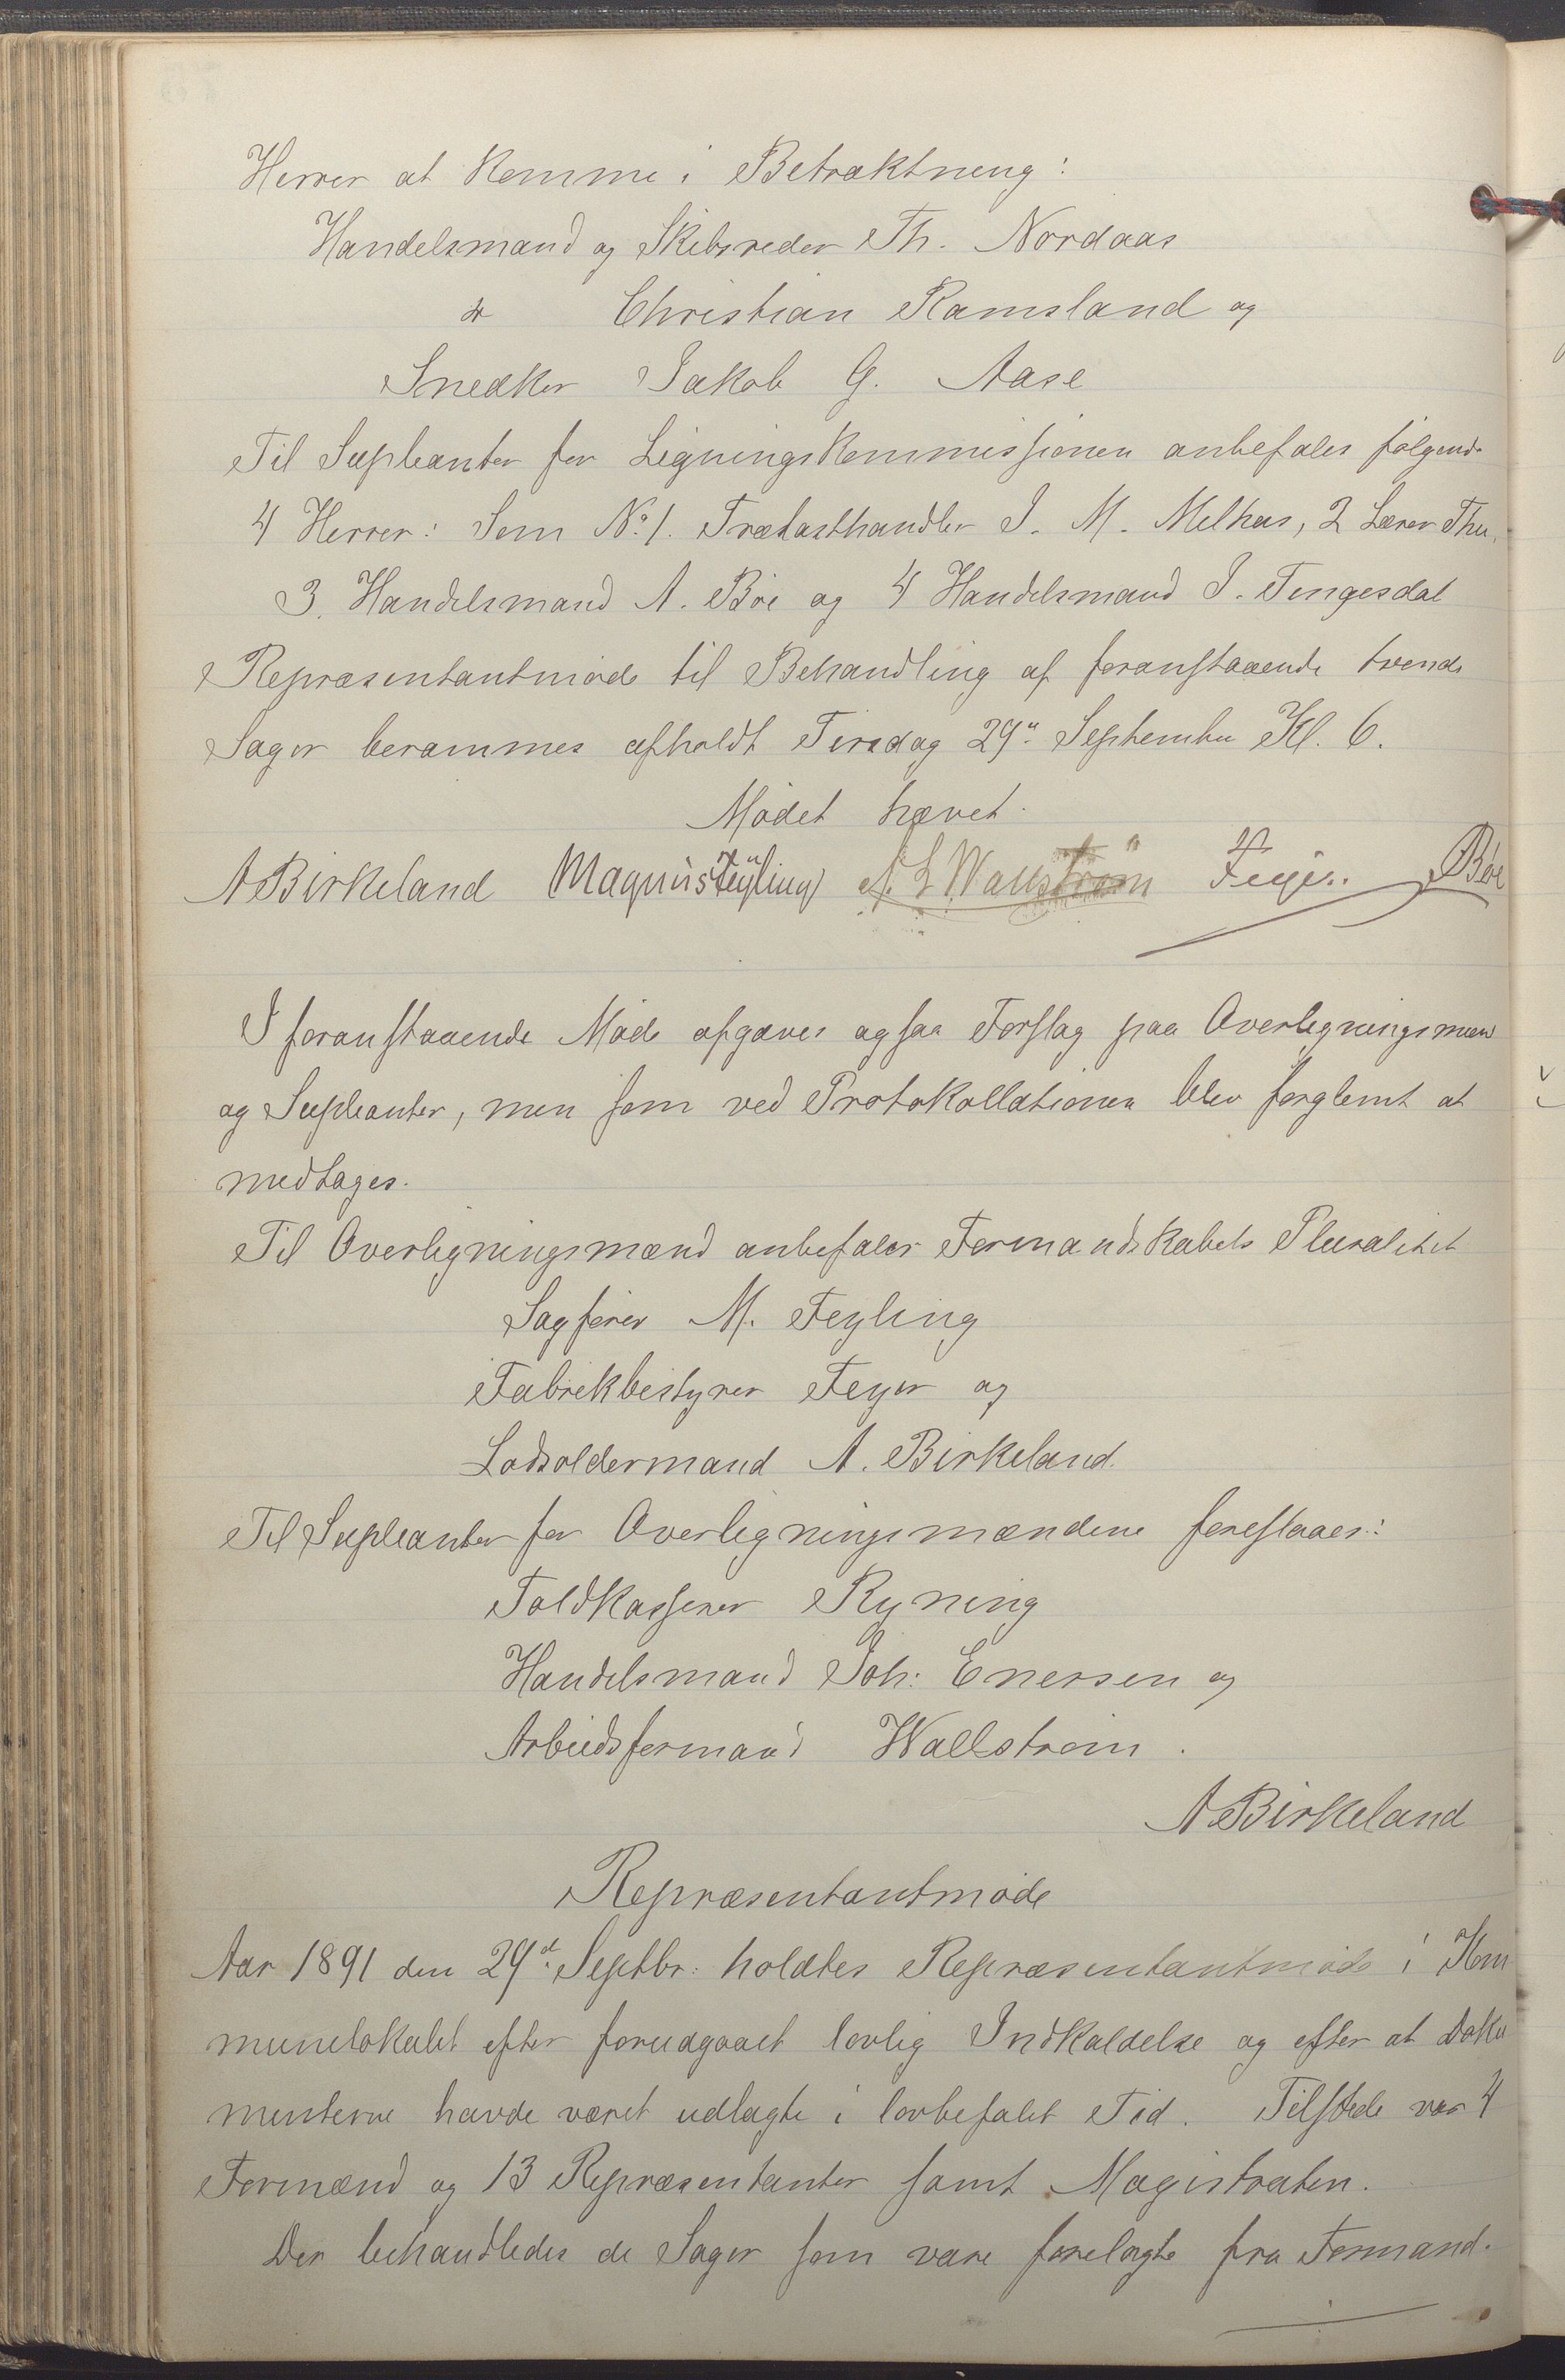 Herrer at komme i Betraktning:
Handelsmand og Skibsreder Th. Nordaas
do Christian Ramsland og
Snedker Jakob G. Aase
Til Supleanter for Ligningskommissionen anbefales følgende
4 Herrer: Som No. 1. Trælasthandler J. M. Melhus, 2 Lærer Thu,
3. Handelsmand A. Bøe og 4 Handelsmand J. Tengesdal
Repræsentantmøde til Behandling af foranstaaende tvende
Sager berammes afholdt Tirsdag 29n September Kl. 6.
Mødet hævet.
A Birkeland Magnus Feyling A. L. Wallström Feyer Bøe
I foranstaaende Møde afgaves ogsaa Forslag paa Overligningsmænd
og Supleanter, men som ved Protokollationen blev forglemt at
medtages.
Til Overligningsmænd anbefaler Formandskabets Pluralitet
Sagfører M. Feyling
Fabrikbestyrer Feyer og
Lodsoldermand A. Birkeland.
Til Supleanter for Overligningsmændene foreslaaes:
Toldkasserer Ryning
Handelsmand Joh: Enersen og
Arbeidsformand Wallstrøm.
A Birkeland
Repræsentantmøde
Aar 1891 den 29d. Septbr: holdtes Repræsentantmøde i Kom
munelokalet efter forudgaaet lovlig Indkaldelse og efter at Doku
menterne havde været udlagte i lovbefalet Tid. Tilstede var 4
Formænd og 13 Repræsentanter samt Magistraten.
Der behandledes de Sager som vare forelagte fra Formand-